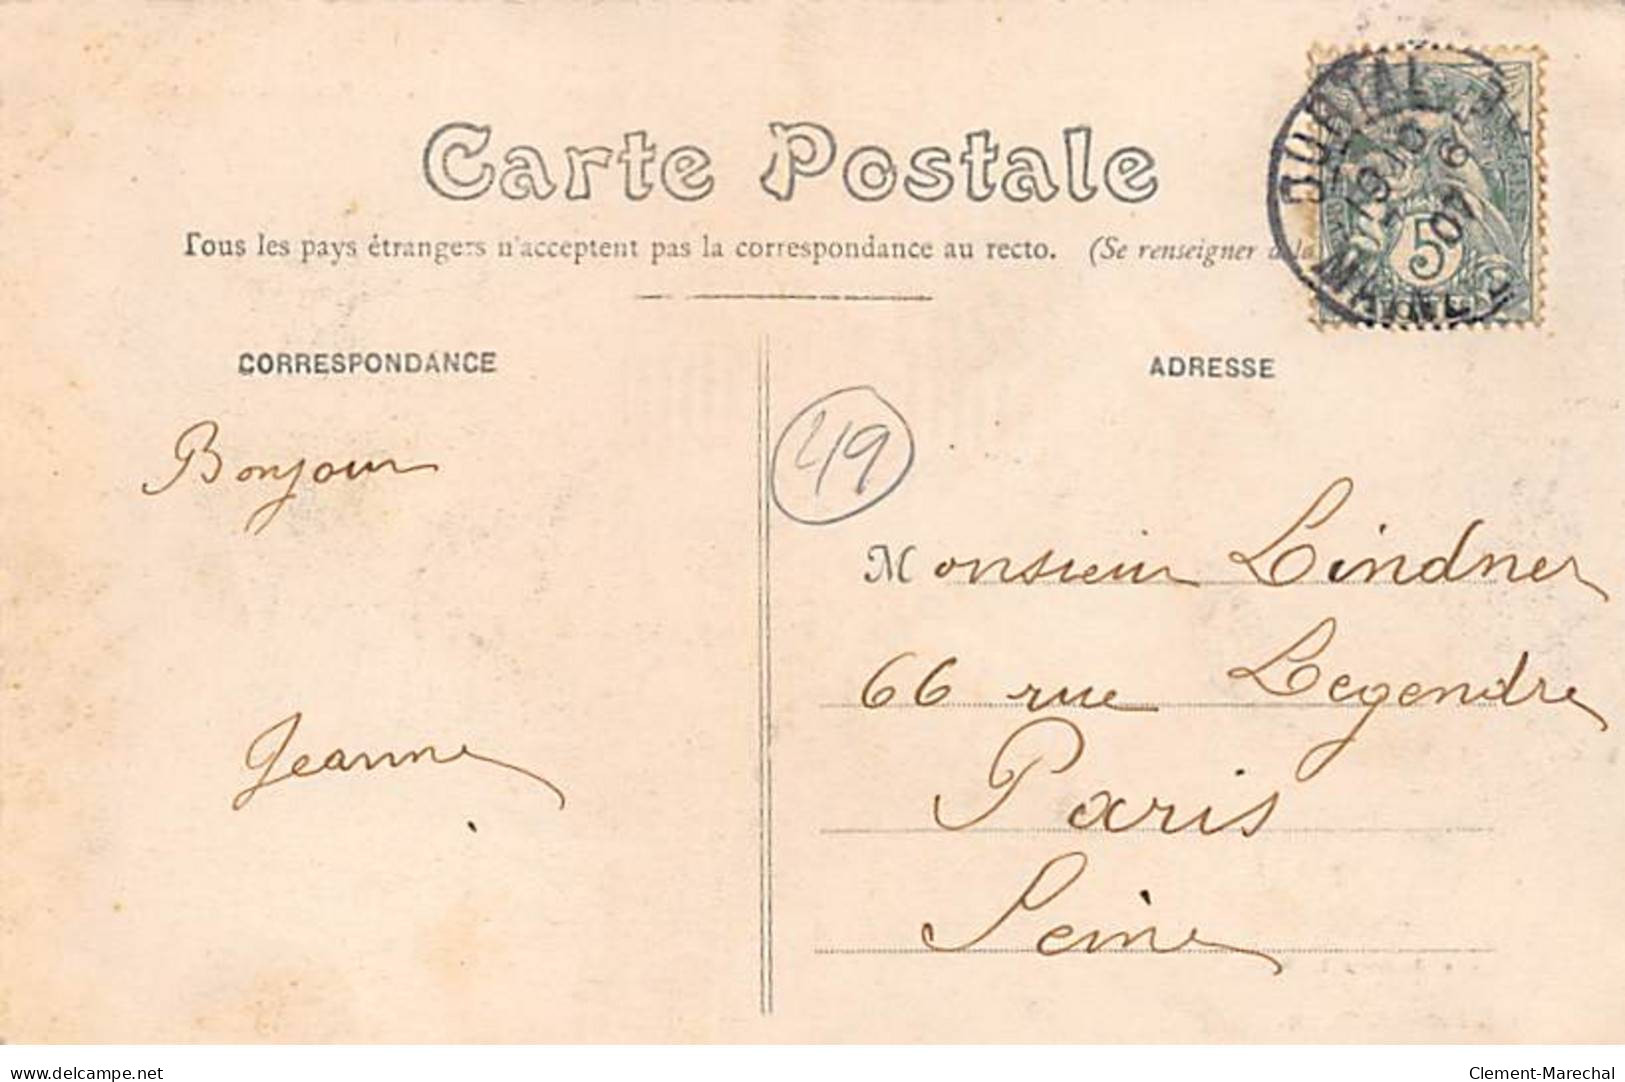 Carte Postale
Tous les pays étrangers n'acceptent pas la correspondance au recto. (Se renseigner à la
CORRESPONDANCE
ADRESSE
Bonjour
Jeanne
49
Monsieur Lindner
66 rue Legendre
Paris
Seine
DURTAL
19
6
07
5
delcampe.net
Clement-Marechal